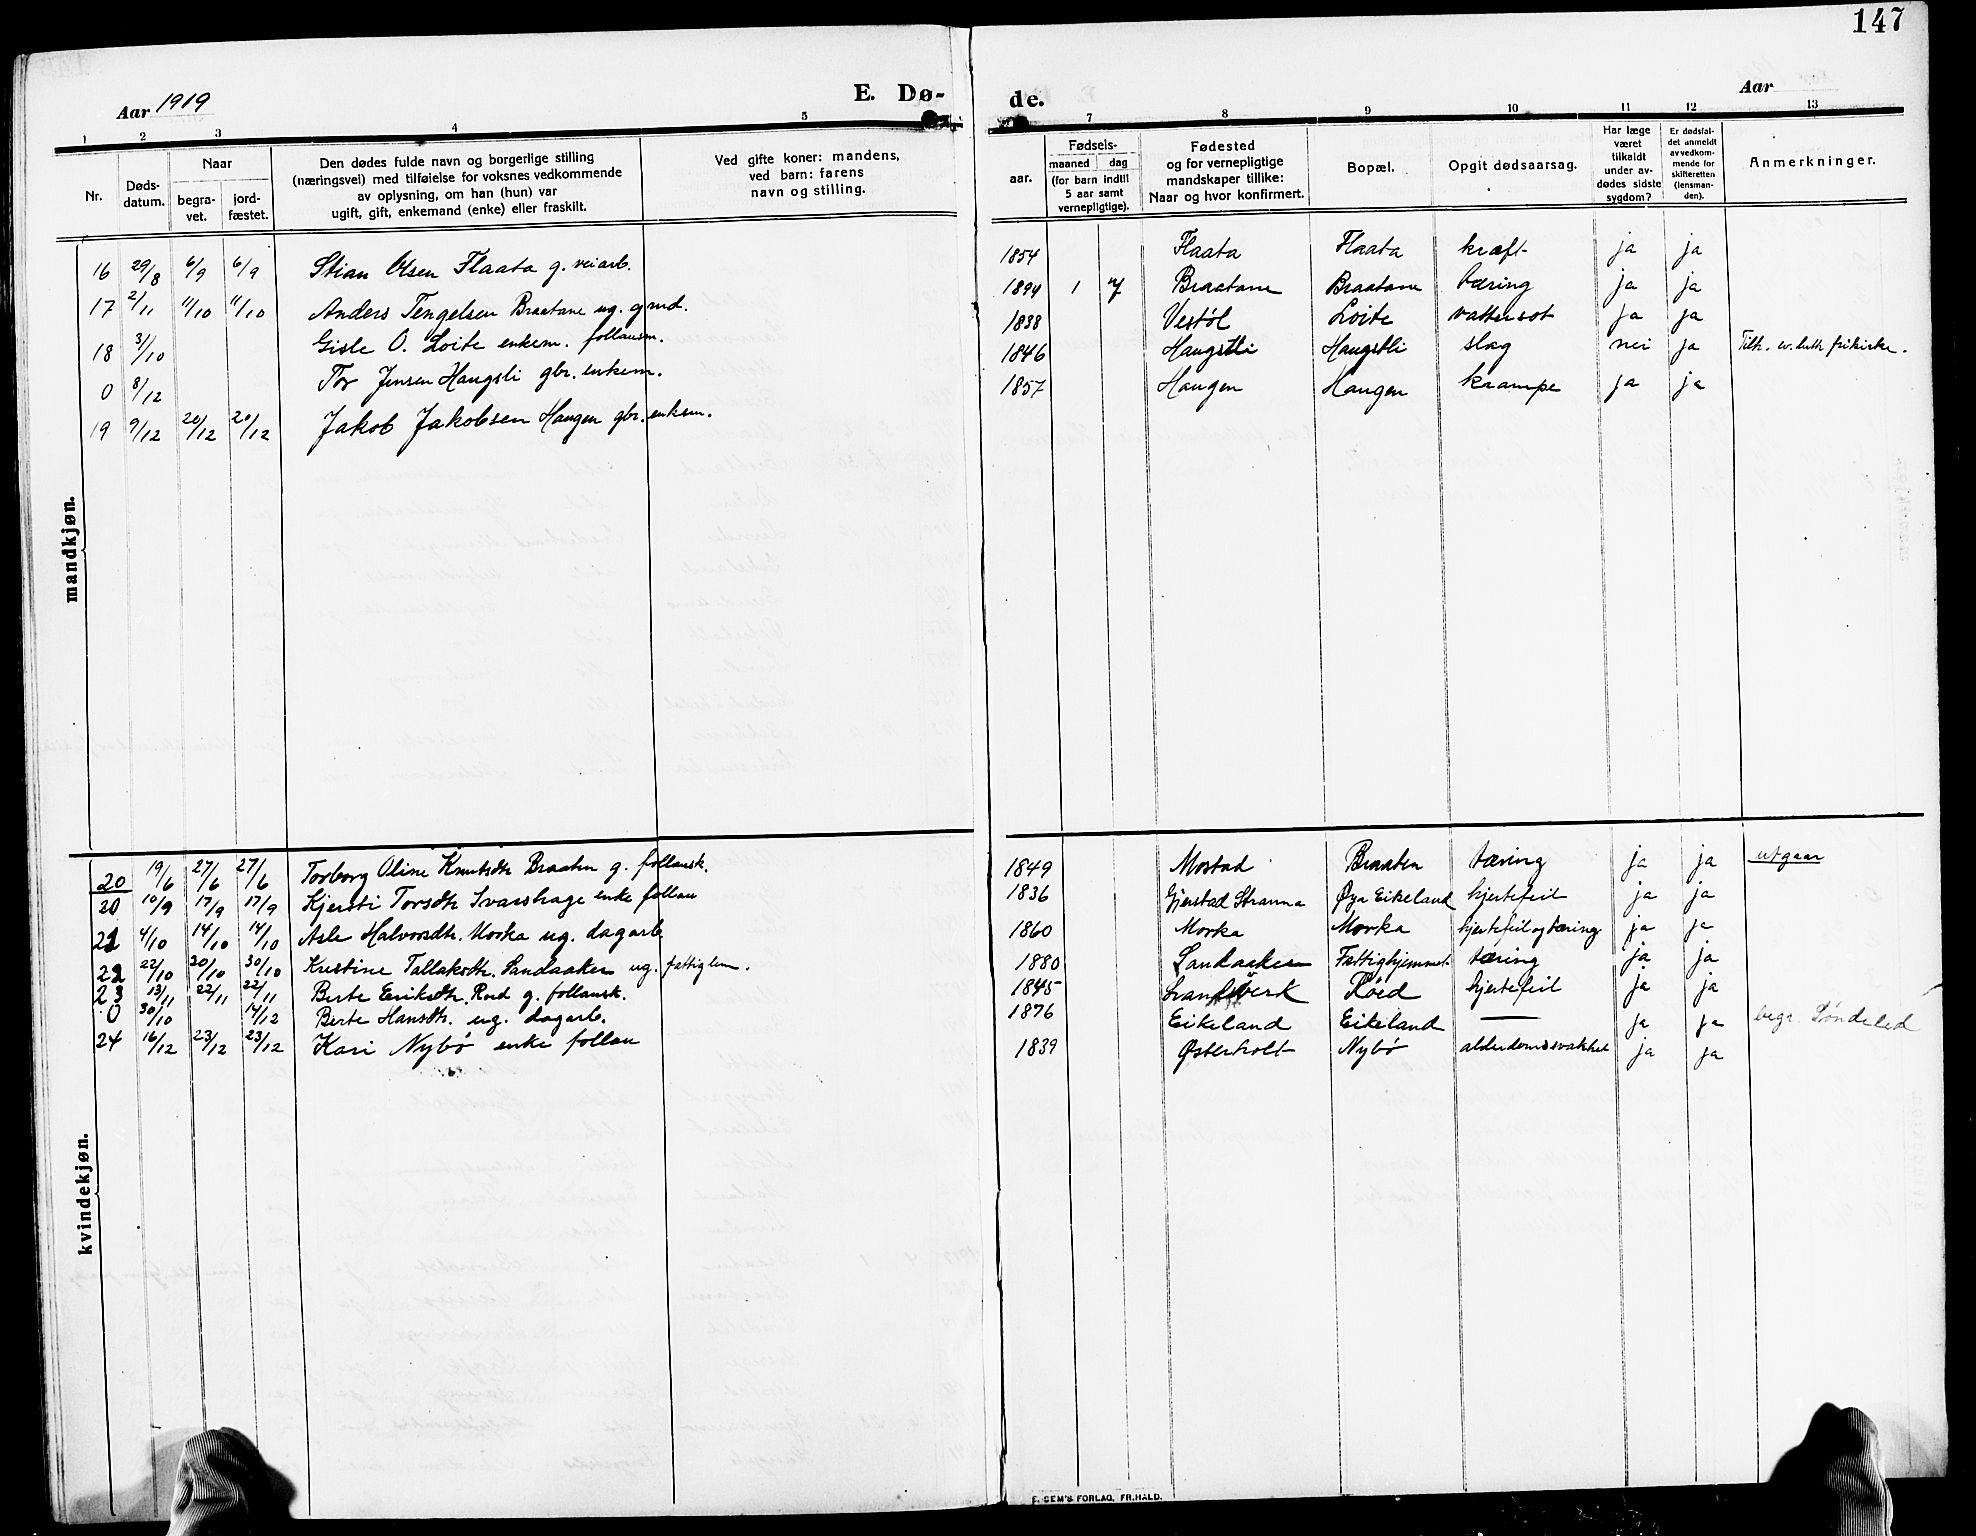 147
Aar 1919
E. Dø-
de.
Aar
1 2 3 4 5 7 8 9 10 11 12 13
Nr.
Døds-
datum.
Naar
begra-
vet.
jord-
fæstet.
Den dødes fulde navn og borgerlige stilling
(næringsvei) med tilføielse for voksnes vedkommende
av oplysning, om han (hun) var
ugift, gift, enkemand (enke) eller fraskilt.
Ved gifte koner: mandens,
ved barn: farens
navn og stilling.
Fødsels-
aar.
maaned
dag
(for barn indtil
5 aar samt
vernepligtige).
Fødested
og for vernepligtige
mandskaper tillike:
Naar og hvor konfirmert.
Bopæl.
Opgit dødsaarsag.
Har læge
været
tilkaldt
under av-
dødes sidste
sygdom?
Er dødsfal-
det anmeldt
av vedkom-
mende for
skifteretten
(lensman-
den).
Anmerkninger.
mandkjøn.
16 29/8 6/9 6/9 Stian Olsen Flaata g. veiarb. 1854 Flaata Flaata kræft ja ja
17 2/11 11/10 11/10 Anders Tengelsen Braatane ug. gmd. 1894 1 7 Braatane Braatane tæring ja ja
18 31/10 Gisle O. Loite enkem. follausm. 1838 Vestøl Loite vattersot ja ja
0 8/12 Tor Jensen Haugsli gbr. enkem. 1846 Haugstli Haugstli slag nei ja Tilh. ev. luth frikirke.
19 9/12 20/12 20/12 Jakob Jakobsen Haugen gbr. enkem. 1857 Haugen Haugen kraampe ja ja
kvindekjøn.
20 19/6 27/6 27/6 Torborg Oline Knutsdtr Braaten g. follausk. 1849 Mostad Braaten tæring ja ja utgaar
20 10/9 17/9 17/9 Kjersti Torsdtr Ivarshage enke follau 1836 Gjerstad Stranna Øya Eikeland hjertefeil ja ja
21 4/10 14/10 14/10 Asle Halvorsdtr. Morka ug. dagarb. 1860 Morka Morka hjertefeil og tæring ja ja
22 22/10 30/10 30/10 Kristine Tallaksdtr. Sandaaker ug. fattiglem. 1880 Sandaaker Fattighjemmet tæring ja ja
23 13/11 22/11 22/11 Berte Eriksdtr. Roed g. follausk. 1845 Røed hjertefeil ja ja
0 30/10 14/12 Berte Hansdtr. ug. dagarb. 1876 Eikeland Eikeland — ja ja begr. Søndeled
24 16/12 23/12 23/12 Kari Nybø enke follau 1839 Østerholt Nybø alderdomssvakhet ja ja
E. SEM'S FORLAG, FR.HALD.